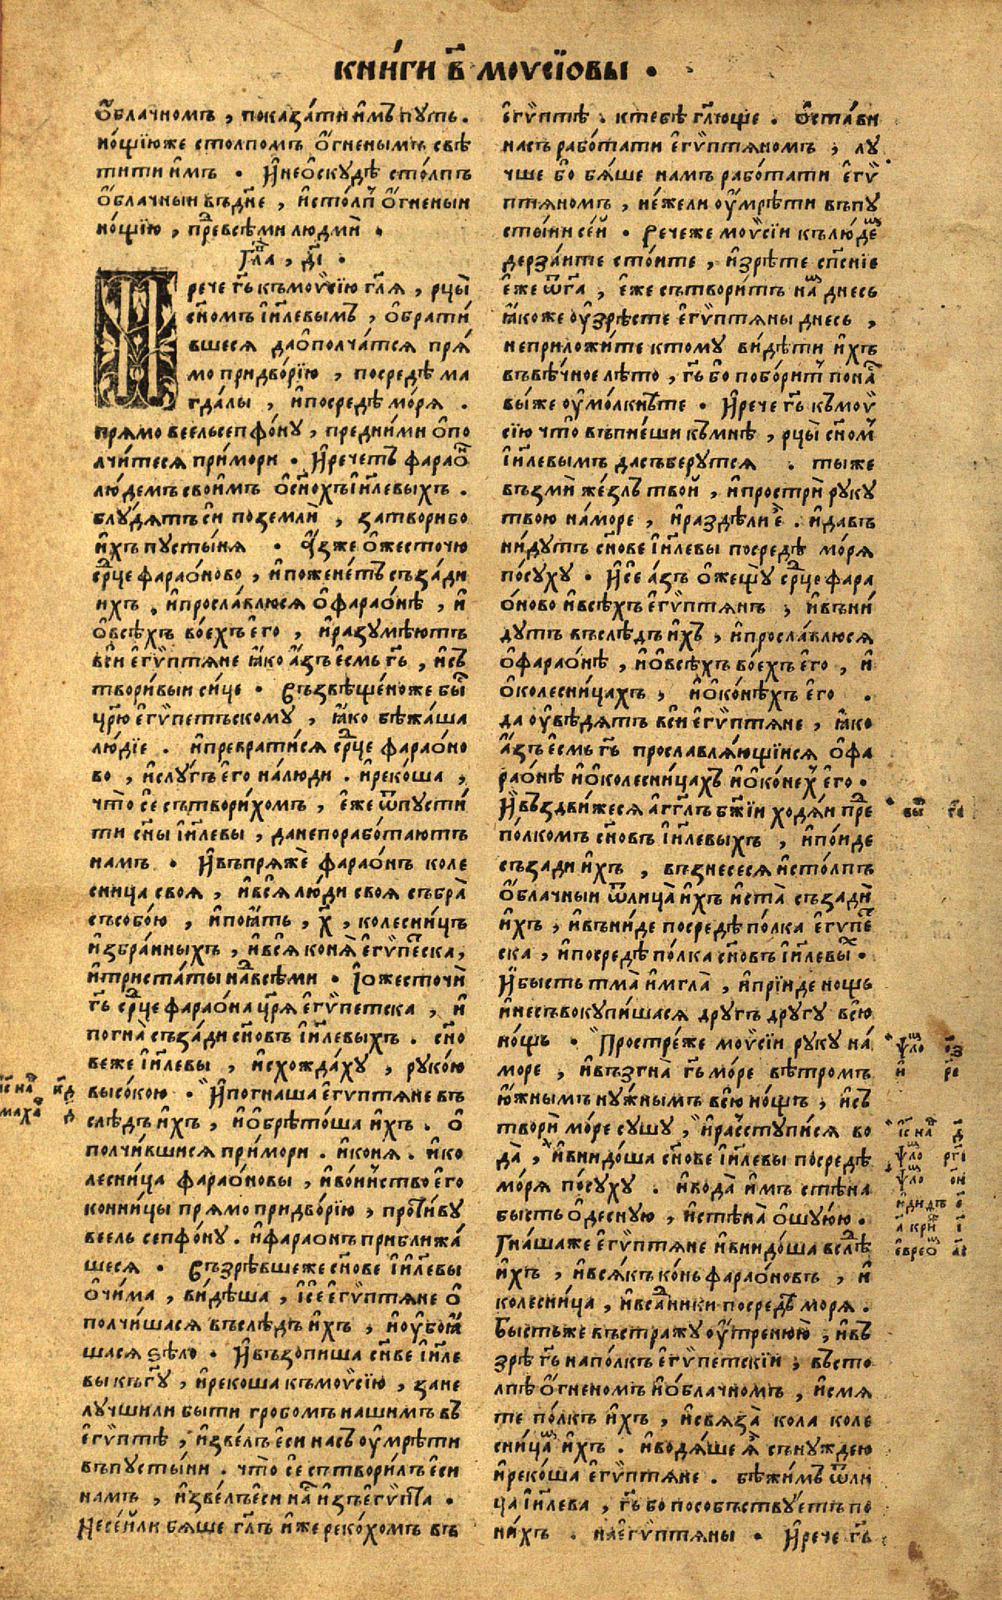 кни́ги в҃ моѵсїовы •
ѻ҆́блачномъ , показа́ти и҆̀мъ пꙋть .
но́щїюже столпомъ ѻ҆́гненымъ свѣ
тити и҆̀мъ • И҆нео҆скꙋдѣ сто́лпъ
ѻ҆́блачныи въдн҃е , и҆сто́лп̾ ѻ҆́гненыи
но́щїю , пре⁣двсѣ́ми людмѝ •
Гла⁣в , д҃і •
И рече гь҃ къмоѷсїю гл҃я , рцы̀
сн҃омъ і҆и҃левымъ , ѻ҆брати́
вшеся дао҆полча́тся пря́
мо придво́рїю , посредѣ ма
гда́лы , и҆посредѣ мо́ря .
прямо веельсепфо́нꙋ , предни́ми ѻ҆по
лчи́теся при́мори • И҆речетъ фарао҆н
лю́демъ свои́мъ ѻ҆сн҃охъ і҆и҃левыхъ .
блꙋ́дятъ сѝ поземлѝ , затворибо
и҆́хъ пꙋсты́ня • А҆́зже ѡ҆жесточю
ср҃це фарао́ново , и҆поженéтъ съза́ди
ихъ , и҆просла́влюся ѻ҆фарао́нѣ , и҆
ѻ҆всѣ́хъ во́ехъ е҆го , и҆разꙋмѣ́ютъ
всѝ е҆гѷптяне ꙗ҆́ко а҆́зъ е҆́смь гь҃ , и҆съ
твори́выи си́це • Съзвѣщéноже бы́с
цр҃ю е҆гѷпетъскомꙋ , ꙗ҆́ко бѣжа́ша
лю́дїе . и҆преврати́ся ср҃це фарао́но
во , и҆слꙋ́гъ е҆го на́люди . и҆реко́ша ,
что̀ сѐ сътвори́хомъ , е҆́же ѿпꙋсти́
ти сн҃ы і҆и҃левы , данепоработаютъ
намъ • И҆въпряжѐ фарао́нъ коле
сница своя̀ , и҆вся̀ лю́ди своя събра̀
съсобо́ю , и҆поꙗ́тъ , х҃ , колесни́цъ
и҆збра́нныхъ , и҆вся̀ коня̀ е҆гѷпеска ,
и҆триста́ты на⁣двсѣми • І҆ѡжесточѝ
гь҃ ср҃це фарао́на цр҃я е҆гѷпетска , и҆
погна̀ съза́ди сн҃овъ і҆и҃левыхъ . сн҃о
веже і҆и҃левы , и҆схожда́хꙋ , рꙋко́ю
высо́кою • И҆погнаша е҆гѷптяне въ
слѣ́дъ и҆́хъ , и҆ѻ҆брѣто́ша и҆́хъ . ѻ҆
полчи́вшися при́мори . и҆коня . и҆ко
лесни́ца фарао́новы , и҆во́инство е҆го
конницы прямо придво́рїю , проти́вꙋ
веель сепфо́нꙋ . и҆фарао́нъ прибли́жа
шеся • Съзрѣ́вшеже сн҃ове і҆и҃левы
ѻ҆чи́ма , ви́дѣша , і҆сѐ е҆гѷптяне ѻ҆
полчи́шася въслѣ́дъ и҆́хъ , и҆ѹбоꙗ́
шася ѕѣло • И҆възопиша сн҃ве і҆и҃ле
вы къ гꙋ҃ , и҆рекоша къмоѷсїю , зане
лꙋчшили быти гробомъ нашимъ въ
е҆гѷптѣ , и҆звéлъ е҆си насъ ѹ҆мрѣти
въпꙋсты́ни . что̀ сѐ сътворилъ е҆си
намъ , и҆звéлъ е҆си на́с и҆зъ е҆гѷпта •
Несéйли бяше гл҃ъ и҆́же реко́хомъ въ
е҆гѷптѣ . ктебѣ гл҃юще . Ѻ҆ста́ви
насъ рабо́тати е҆гѷптяномъ ; лꙋ
чше бо бя́ше намъ рабо́тати е҆гѷ
птяномъ , нéжели ѹ҆мрѣти въпꙋ
сты́ни сéй • Речеже моѷси́и къ лю́дем
дерза́ите сто́ите , и҆зрѣте сп҃сн́їе
е҆́же ѿг҃а , е҆́же сътвори́тъ на́м днесь
ꙗ҆́коже ѹ҆́зрѣсте е҆гѷптяны днесь ,
неприложи́те ктомꙋ ви́дѣти и҆́хъ
въвѣ́чное лѣто , гь҃ бо побо́ритъ по на́с
вы́же ѹ҆мо́лкнѣте • И҆рече гь҃ къмоѷ
сїю что̀ въпїéши къмнѣ , рцы̀ сн҃ом̾
і҆и҃левымъ дасъберꙋтся . тыже
възмѝ жéзлъ твой , и҆прострѝ рꙋкꙋ
твою на́море , и҆раздѣлѝ е҆̀ . и҆давъ
ни́дꙋтъ сн҃ове і҆и҃левы посредѣ мо́ря
по́сꙋхꙋ • И҆сѐ а҆́зъ ѻ҆жещꙋ̀ ср҃це фара
о́ново и҆всѣ́хъ е҆гѷптянъ ; и҆въни́
дꙋтъ въслѣ́дъ и҆́хъ , и҆просла́влюся
ѻ҆фарао́нѣ , и҆ѻ҆всѣ́хъ во́ехъ е҆го , и҆
ѻ҆колесни́цахъ , и҆ѻ҆ко́нѣхъ е҆го .
да ѹ҆вѣ́дятъ всѝ е҆гѷптяне , ꙗ҆́ко
а҆́зъ е҆́смь гь҃ прославля́ющїися ѻ҆фа
рао́нѣ и҆ѻ҆колесни́цахъ и҆ѻ҆ко́нех̾ е҆го •
И҆въздви́жеся а҆́гг҃лъ бж҃їи ходя́и пре⁣д
по́лкомъ сн҃овъ і҆и҃левыхъ , и҆по́иде
съза́ди и҆́хъ , възнесéся и҆сто́лпъ
ѻ҆́блачныи ѿлица̀ и҆́хъ и҆ста̀ съза́ди
и҆́хъ , и҆въни́де посредѣ по́лка е҆гѷпе
ска , и҆посредѣ по́лка сн҃овъ і҆и҃левы́х •
И҆бысть тма̀ и҆мгла̀ , и҆прїи́де нощь
и҆несъвокꙋпи́шася дрꙋгъ дрꙋгꙋ всю̀
но́щь • Простре́же моѷси́и рꙋкꙋ на́
море , и҆възгна̀ гь҃ мо́ре вѣ́тромъ
ю҆́жнымъ нꙋ́жнымъ всю̀ но́щъ , и҆съ
творѝ мо́ре сꙋшꙋ , и҆ра⁣сстꙋпи́ся во
да̀ , и҆внидо́ша сн҃ове і҆и҃левы посредѣ
мо́ря по́сꙋхꙋ . и҆вода̀ и҆́мъ стѣна
бысть ѻ҆деснꙋю , и҆стѣна̀ ѻ҆шꙋ́юю .
Гна́шаже е҆гѷптяне и҆внидо́ша вслѣ⁣д
и҆́хъ , и҆вся́къ ко́нь фарао́новъ , и҆
колесни́ца , и҆вса⁣дники посредѣ моря .
Бысть́же въстражꙋ ѹ҆́тренюю ; и҆въ
зрѣ̀ гь҃ на по́лкъ е҆гѷпетскїи ; въсто
лпѣ ѻ҆́гненомъ и҆ѻ҆́блачномъ , и҆смя
те по́лкъ и҆́хъ , и҆связа̀ кола коле
сни́ца́м и҆́хъ . и҆водя́ше ꙗ҆̀ съ нꙋждею
и҆реко́ша е҆гѷптяне . бѣжи́мъ ѿли
ца і҆и҃лева , гь҃ бо пособъствꙋетъ по
ни́хъ . наегѷптяны • И҆рече гь҃